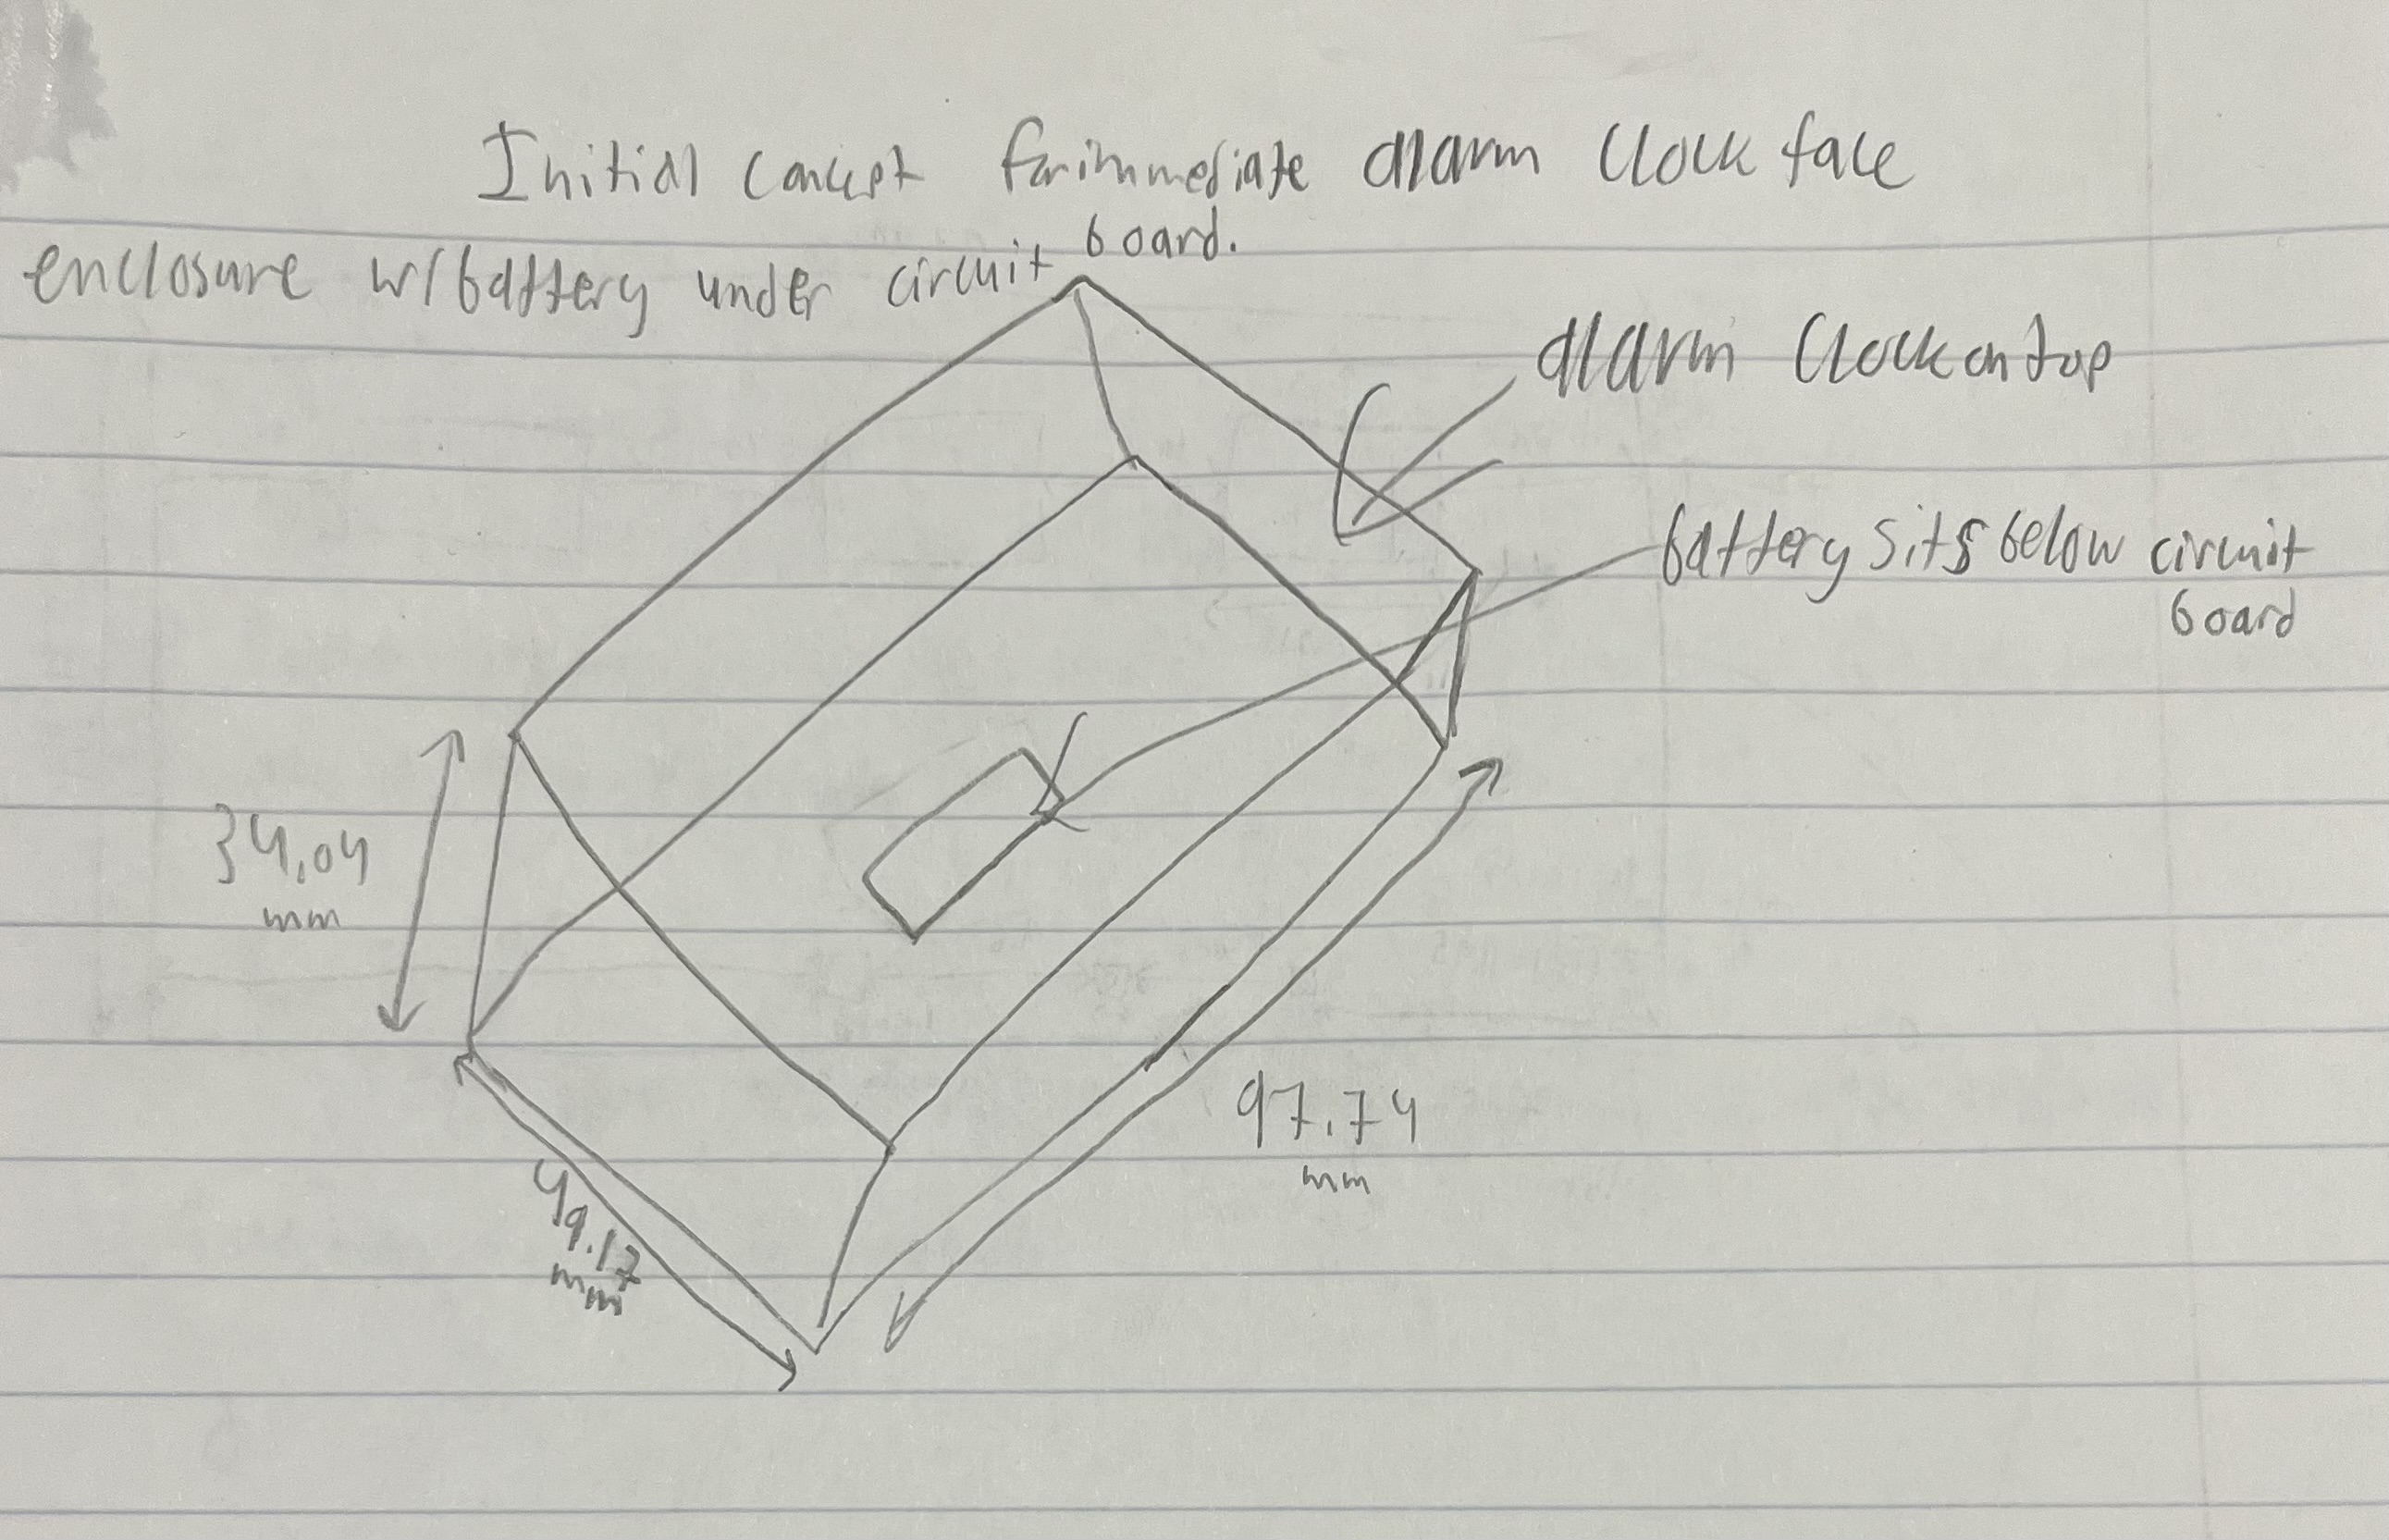 Initial concept for immediate alarm clock face
enclosure w/battery under circuit board.
alarm clock on top
battery sits below circuit
board
34.04
mm
97.74
mm
49.17
mm